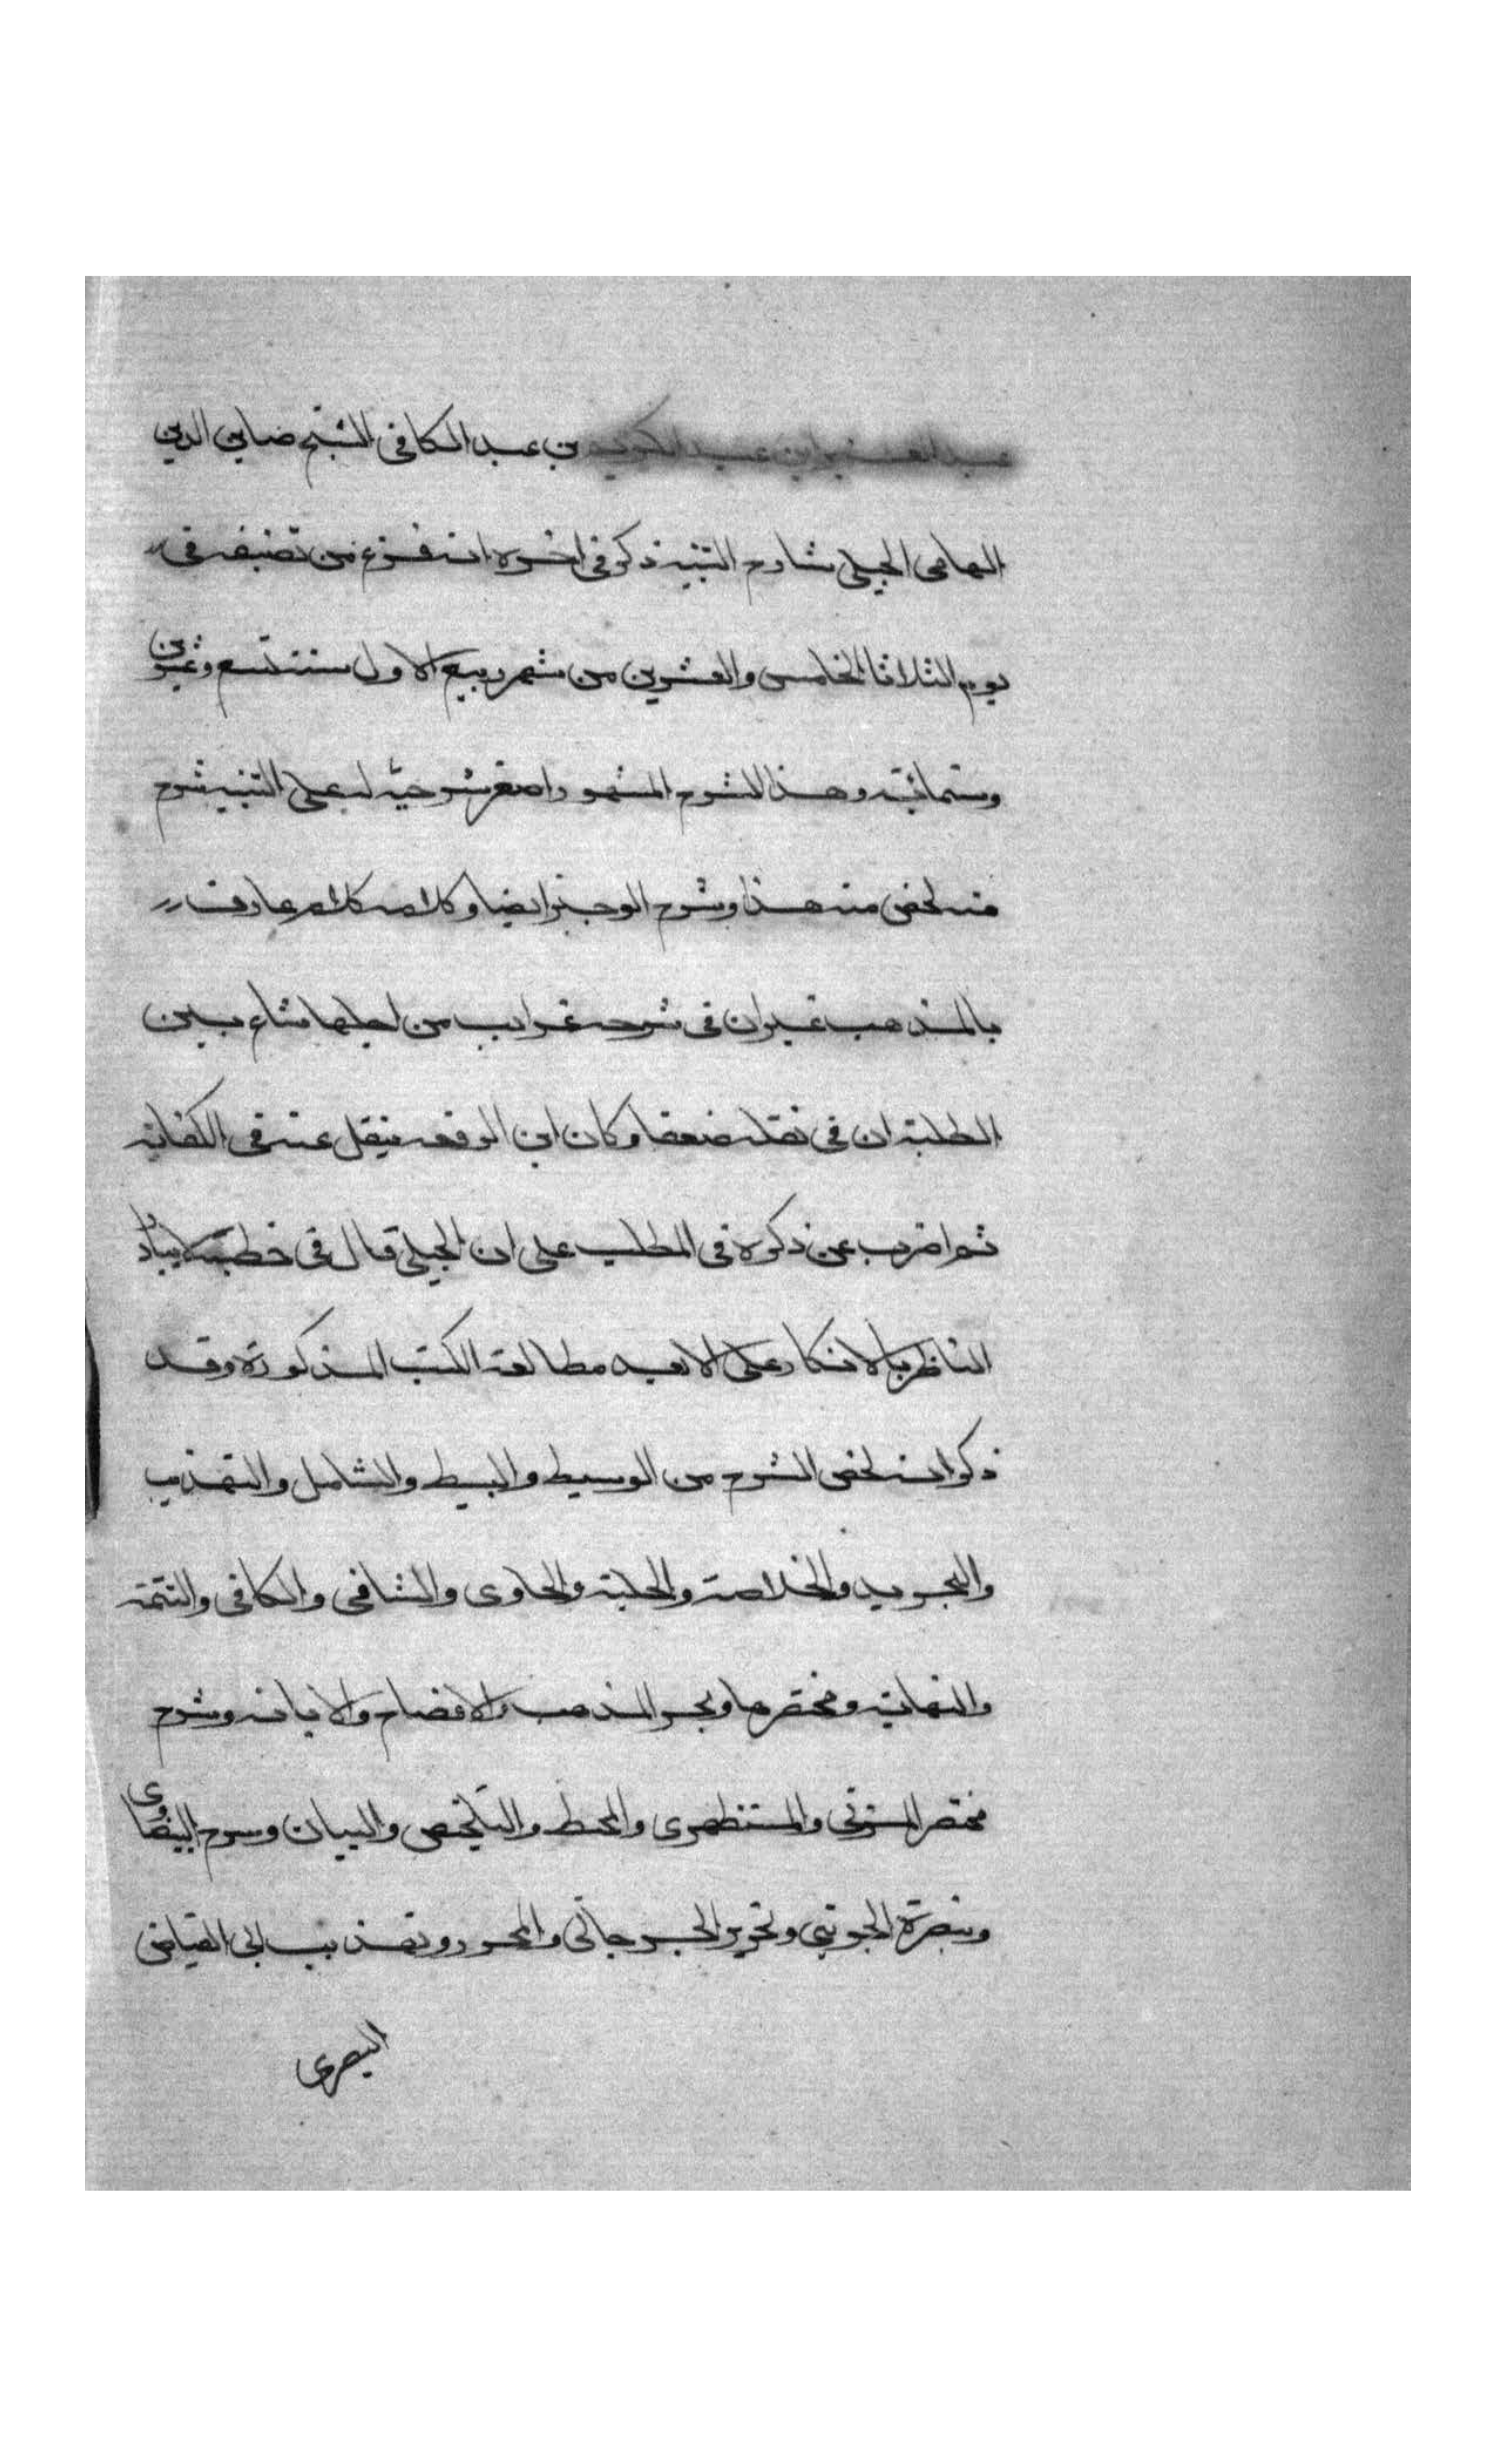 عبد العزيز ابن عبد الكريم بن عبد الكافى الشيخ صاين الدين
الهامى الجيلى شارح التنبيه ذكر فى اخره انه فرغ من تصنيفه فى
يوم الثلاثا الخامس والعشرين من شهر ربيع الاول سنة تسع وعشرين
وستمائة وهذا الشرح المشهور اصغر شرحيه له على التنبيه شرح
منه لخص منه هذا وشرح الوجيز ايضا وكلامه كلام عارف
بالمذهب غير ان فى شرحه غرايب من اجلها شاع بين
الطلبة ان فى نقله ضعفا وكان ابن الرفعه ينقل عنه فى الكفاية
ثم اضرب عن ذكره فى المطلب على ان الجيلى قال فى خطبته لا يبادر
الناظر بالانكار على الا بعد مطالعة الكتب المذكورة وقد
ذكر انه لخص الشرح من الوسيط والبسيط والشامل والتهذيب
والتجريد والخلاصة والحلية والحاوى والشافى والكافى والتتمة
والنهاية ومختصرها وبحر المذهب والافصاح والابانه وشرح
مختصر المزنى والمستظهرى والمحيط والتلخيص والبيان وسرح البيضاوى
وتبصرة الجوينى وتحرير الجرجانى والمحرر وتهذيب ابى الفياض
البصرى